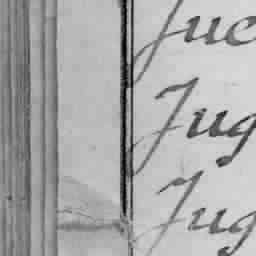 Juc
Jug
Jug